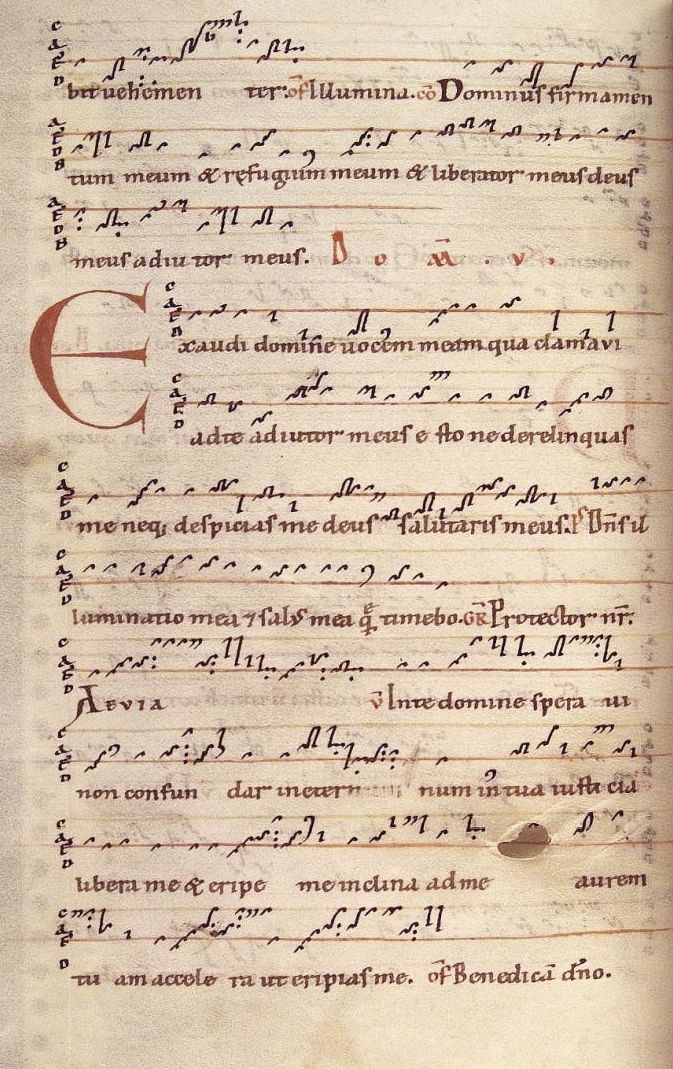 bit uehemen ter. of Illumina. cō Dominus firmamen
tum meum & refugium meum & liberator meus deus
meus adiutor meus. Dom̄. v.
Exaudi domine uocem meam qua clamavi
ad te adiutor meus esto ne derelinquas
me neq; despicias me deus salutaris meus. ps Dn̄s il
luminatio mea & salus mea q̄ timebo. GR Protector nr̄.
AEVIA v̄ In te domine spera ui
non confun dar in etern num in tua iusticia
libera me & eripe me inclina ad me aurem
tu am accele ra ut eripias me. of Benedicā dn̄o.